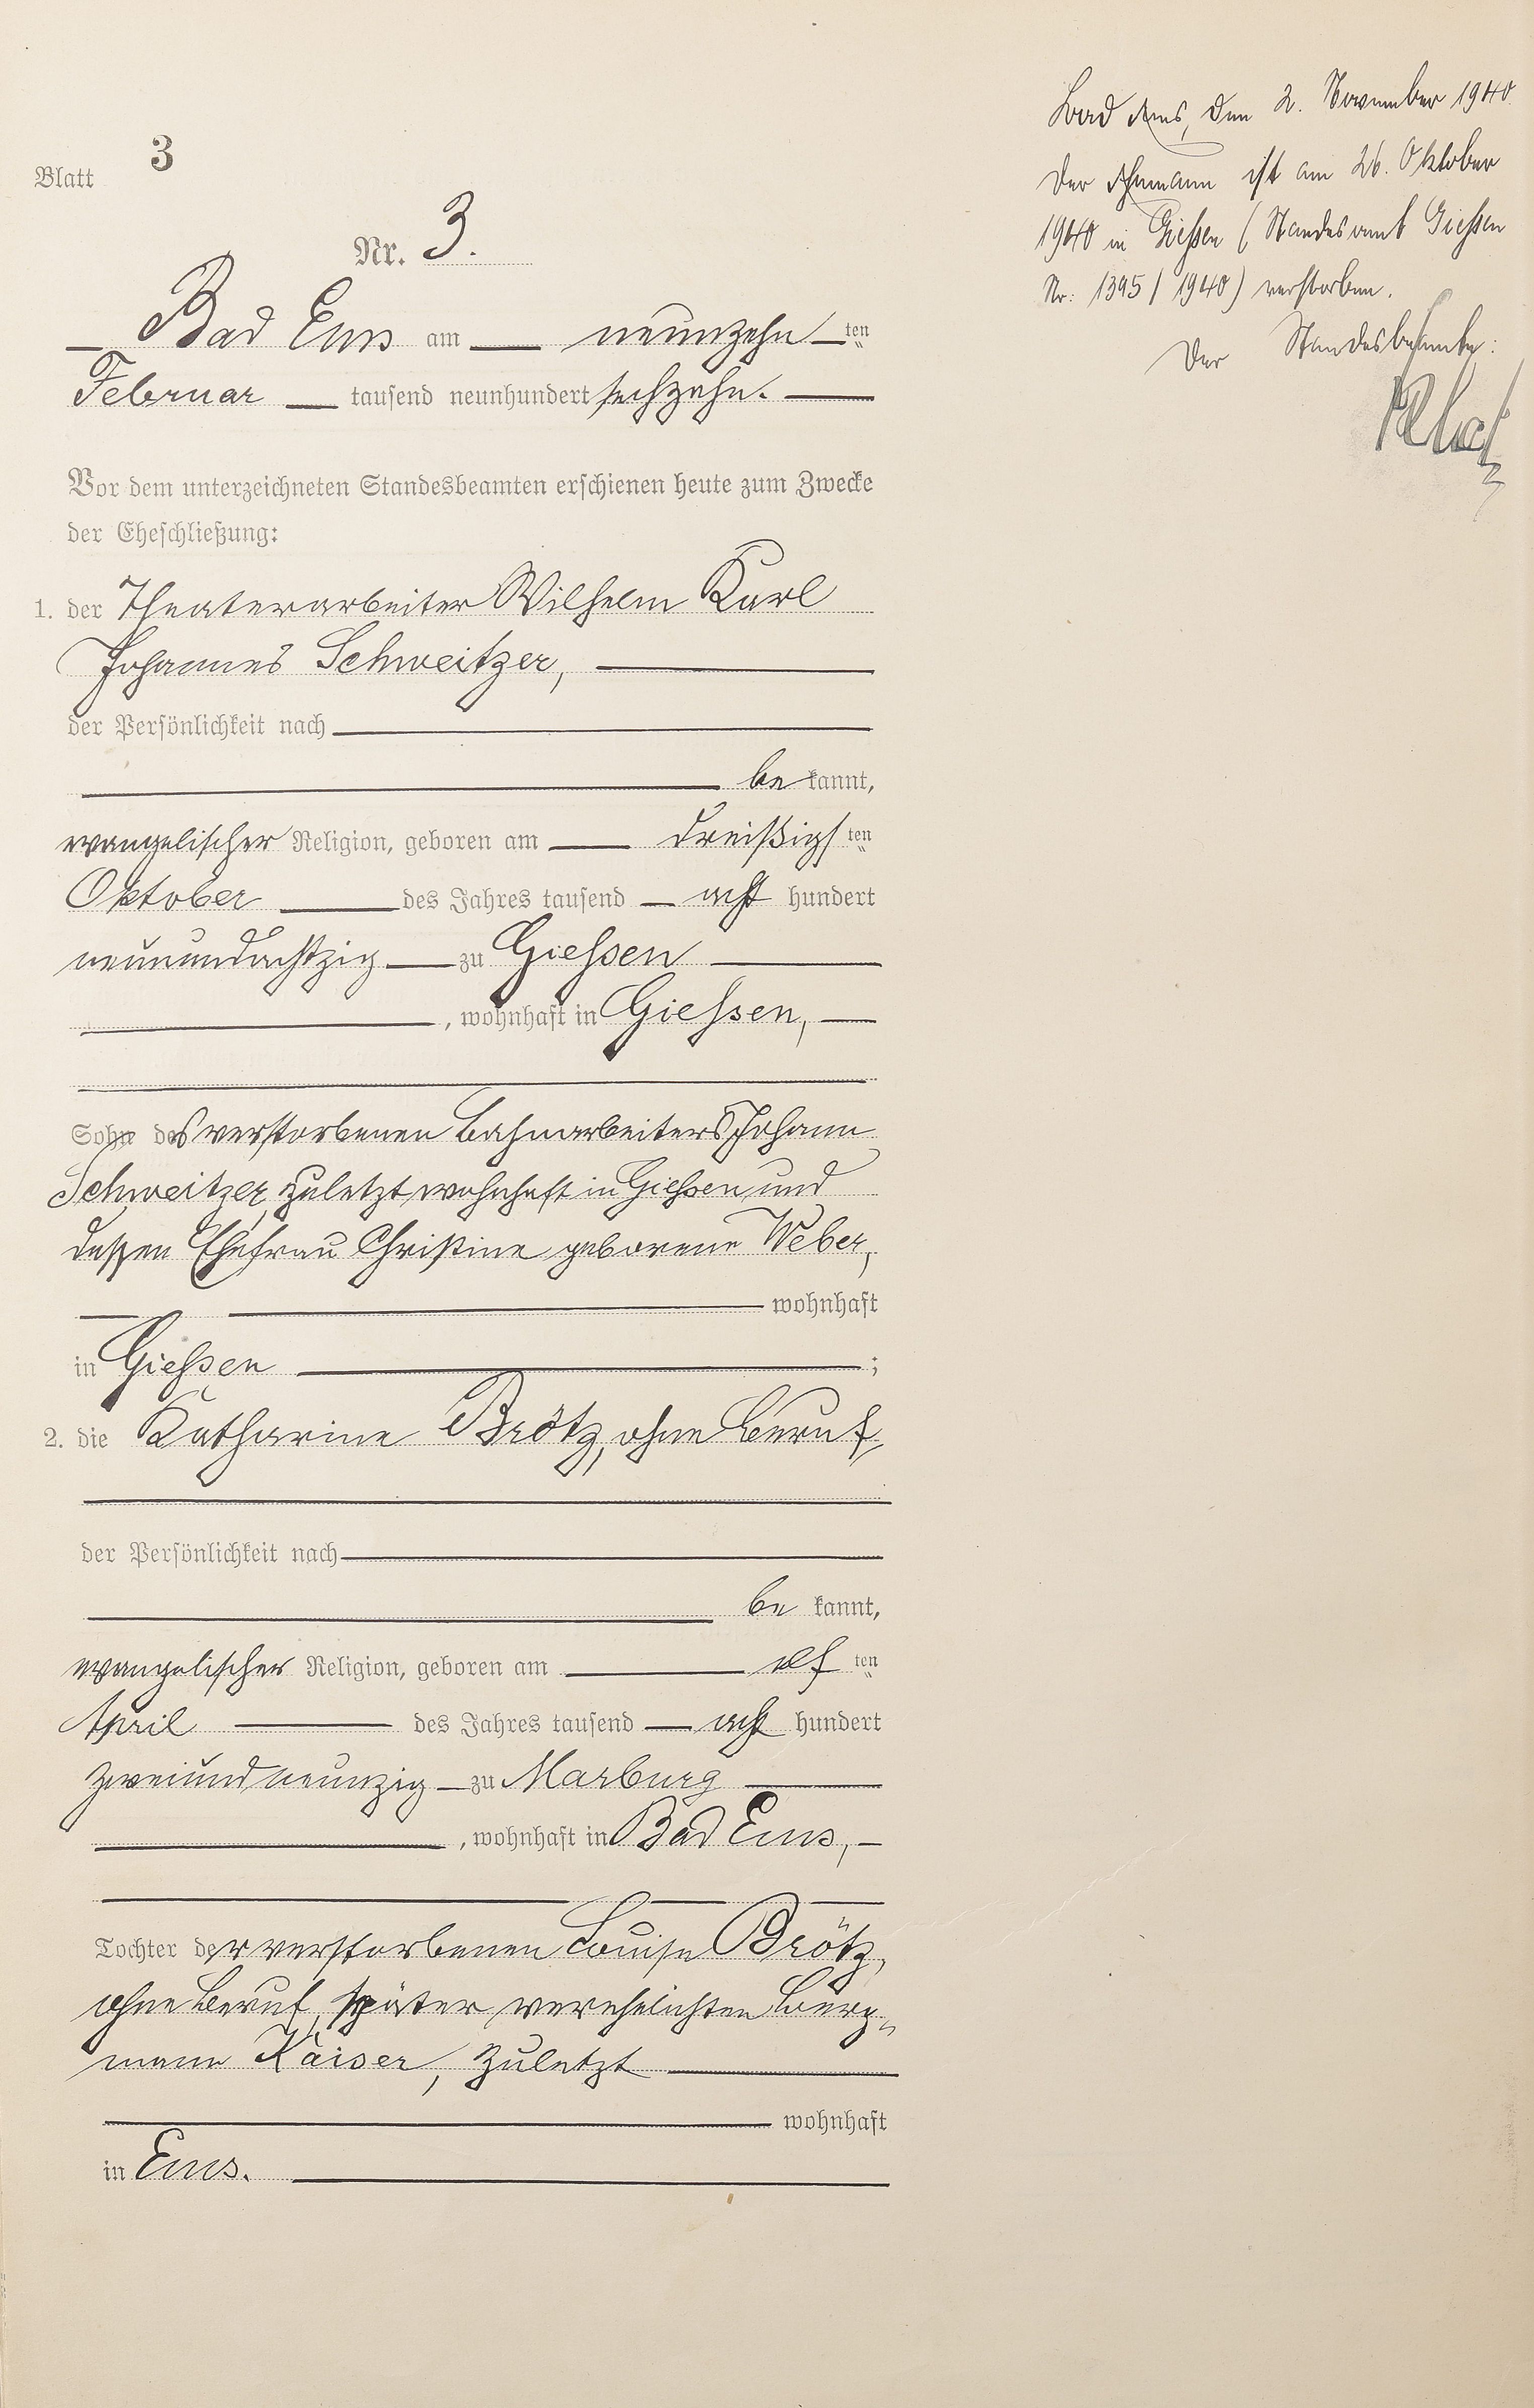 Blatt 3
Nr. 3.
Bad Ems am neunzehnten
Februar tausend neunhundert sechzehn.
Vor dem unterzeichneten Standesbeamten erschienen heute zum Zwecke
der Eheschließung:
1. der Theaterarbeiter Wilhelm Karl
Johannes Schweitzer,
der Persönlichkeit nach
be kannt,
evangelischer Religion, geboren am dreißigsten
Oktober des Jahres tausend acht hundert
neunundachtzig zu Giessen
, wohnhaft in Giessen,
Sohn des verstorbenen Bahnarbeiters Johann
Schweitzer, zuletzt wohnhaft in Giessen und
dessen Ehefrau Christine geborene Weber,
wohnhaft
in Giessen ;
2. die Katharine Brötz, ohne Beruf,
der Persönlichkeit nach
be kannt,
evangelischer Religion, geboren am elf ten
April des Jahres tausend acht hundert
zweiundneunzig zu Marburg
, wohnhaft in Bad Ems,
Tochter der verstorbenen Louise Brötz,
ohne Beruf, später verehelichten Berg-
mann Kaiser, zuletzt
wohnhaft
in Ems.
Bad Ems, den 2. November 1940
Der Ehemann ist am 26. Oktober
1940 in Giessen (Standesamt Giessen
Nr: 1395/1940) verstorben.
Der Standesbeamte: